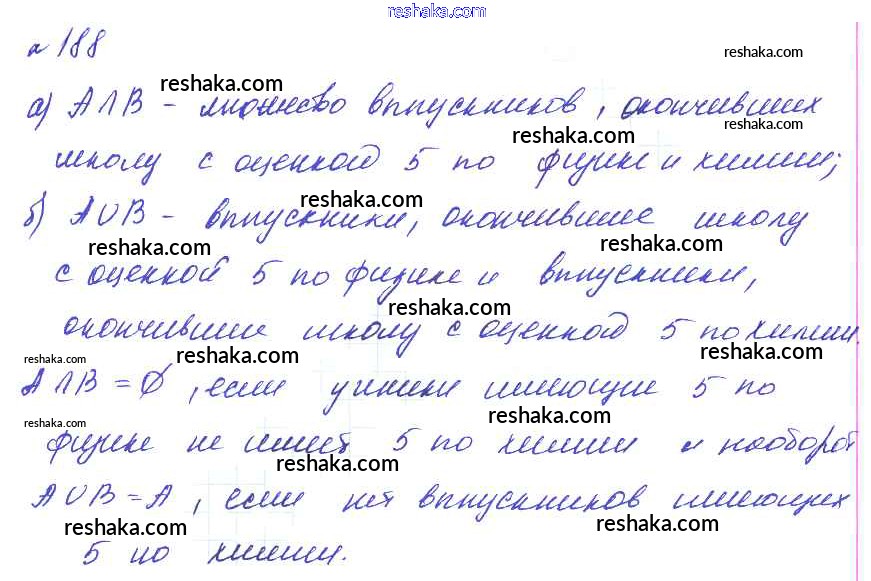 reshaka.com
н 188
reshaka.com
reshaka.com
а) A∩B - множество выпускников, окончивших
reshaka.com
reshaka.com
школу с оценкой 5 по физике и химии;
reshaka.com
б) A∪B - выпускники, окончившие школу
reshaka.com
reshaka.com
с оценкой 5 по физике и выпускники,
reshaka.com
окончившие школу с оценкой 5 по химии.
reshaka.com
reshaka.com
reshaka.com
A∩B = ∅, если ученики имеющие 5 по
reshaka.com
reshaka.com
физике не имеет 5 по химии и наоборот
reshaka.com
A∪B = A, если нет выпускников имеющих
reshaka.com
reshaka.com
5 по химии.